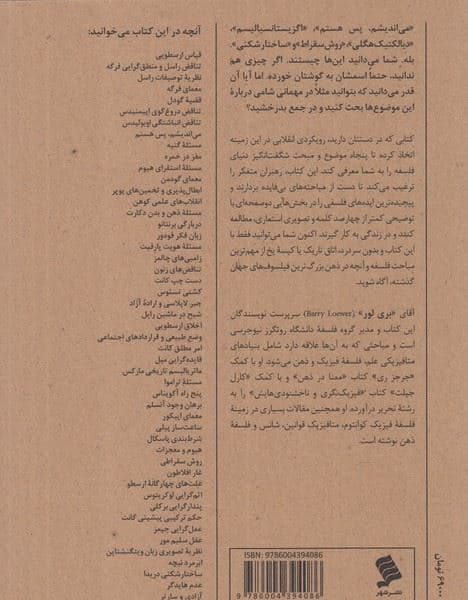 «می‌اندیشم، پس هستم»، «اگزیستانسیالیسم»،
«دیالکتیک هگلی»، «روش سقراط» و «ساختارشکنی».
بله. شما می‌دانید این‌ها چیستند. اگر چیزی هم
ندانید، حتماً اسمشان به گوشتان خورده. اما آیا آن
قدر می‌دانید که بتوانید مثلاً در مهمانی شامی دربارهٔ
این موضوع‌ها بحث کنید و در جمع بدرخشید؟
کتابی که در دستتان دارید، رویکردی انقلابی در این زمینه
اتخاذ کرده تا پنجاه موضوع و مبحث شگفت‌انگیز دنیای
فلسفه را به شما معرفی کند. این کتاب، رهبران متفکر را
ترغیب می‌کند تا دست از مباحثه‌های بی‌فایده بردارند و
پیچیده‌ترین ایده‌های فلسفی را در بخش‌هایی دوصفحه‌ای با
توضیحی کمتر از چهارصد کلمه و تصویری استعاری، مطالعه
کنند و در زندگی به کار گیرند. اکنون شما می‌توانید فقط با
این کتاب و بدون سردرد، اتاق تاریک یا کیسهٔ یخ از مهم‌ترین
مباحث فلسفه و آنچه در ذهن بزرگ‌ترین فیلسوف‌های جهان
گذشته، آگاه شوید.
آقای «بری لور» (Barry Loewer) سرپرست نویسندگان
این کتاب و مدیر گروه فلسفهٔ دانشگاه روتگرز نیوجرسی
است و مباحثی که به آن‌ها علاقه دارد شامل بنیادهای
متافیزیکی علم، فلسفهٔ فیزیک و ذهن می‌شود. او با کمک
«جرجز ری» کتاب «معنا در ذهن» و با کمک «کارل
جیلت» کتاب «فیزیک‌نگری و ناخشنودی‌هایش» را به
رشتهٔ تحریر درآورده. او همچنین مقالات بسیاری در زمینهٔ
فلسفهٔ فیزیک کوانتوم، متافیزیک قوانین، شانس و فلسفهٔ
ذهن نوشته است.
آنچه در این کتاب می‌خوانید:
قیاس ارسطویی
تناقض راسل و منطق‌گرایی فرگه
نظریهٔ توصیفات راسل
معمای فرگه
قضیهٔ گودل
تناقض دروغ‌گوی اپیمنیدس
تناقض انباشتگی اوبولیدس
می‌اندیشم، پس هستم
مسئلهٔ گتیه
مغز در خمره
مسئلهٔ استقرای هیوم
معمای گودمن
ابطال‌پذیری و تخمین‌های پوپر
انقلاب‌های علمی کوهن
مسئلهٔ ذهن و بدن دکارت
دربارگی برنتانو
زبان فکر فودور
مسئلهٔ هویت پارفیت
زامبی‌های چالمرز
تناقض‌های زنون
دست چپ کانت
کشتی تسئوس
جبر لاپلاسی و ارادهٔ آزاد
شبح در ماشین رایل
اخلاق ارسطویی
وضع طبیعی و قراردادهای اجتماعی
امر مطلق کانت
فایده‌گرایی میل
ماتریالیسم تاریخی مارکس
مسئلهٔ تراموا
پنج راه آکویناس
برهان وجود آنسلم
معمای اپیکور
ساعت‌ساز پیلی
شرط‌بندی پاسکال
هیوم و معجزات
روش سقراطی
غار افلاطون
علت‌های چهارگانهٔ ارسطو
اتم‌گرایی لوکرتیوس
پندارگرایی برکلی
حکم ترکیبی پیشینی کانت
عمل‌گرایی جیمز
عقل سلیم مور
نظریهٔ تصویری زبان ویتگنشتاین
ابرمرد نیچه
ساختارشکنی دریدا
عدم هایدگر
آزادی و سارتر
ISBN: 9786004394086
9 786004 394086
نشر شهر
۶۹۰۰۰ تومان